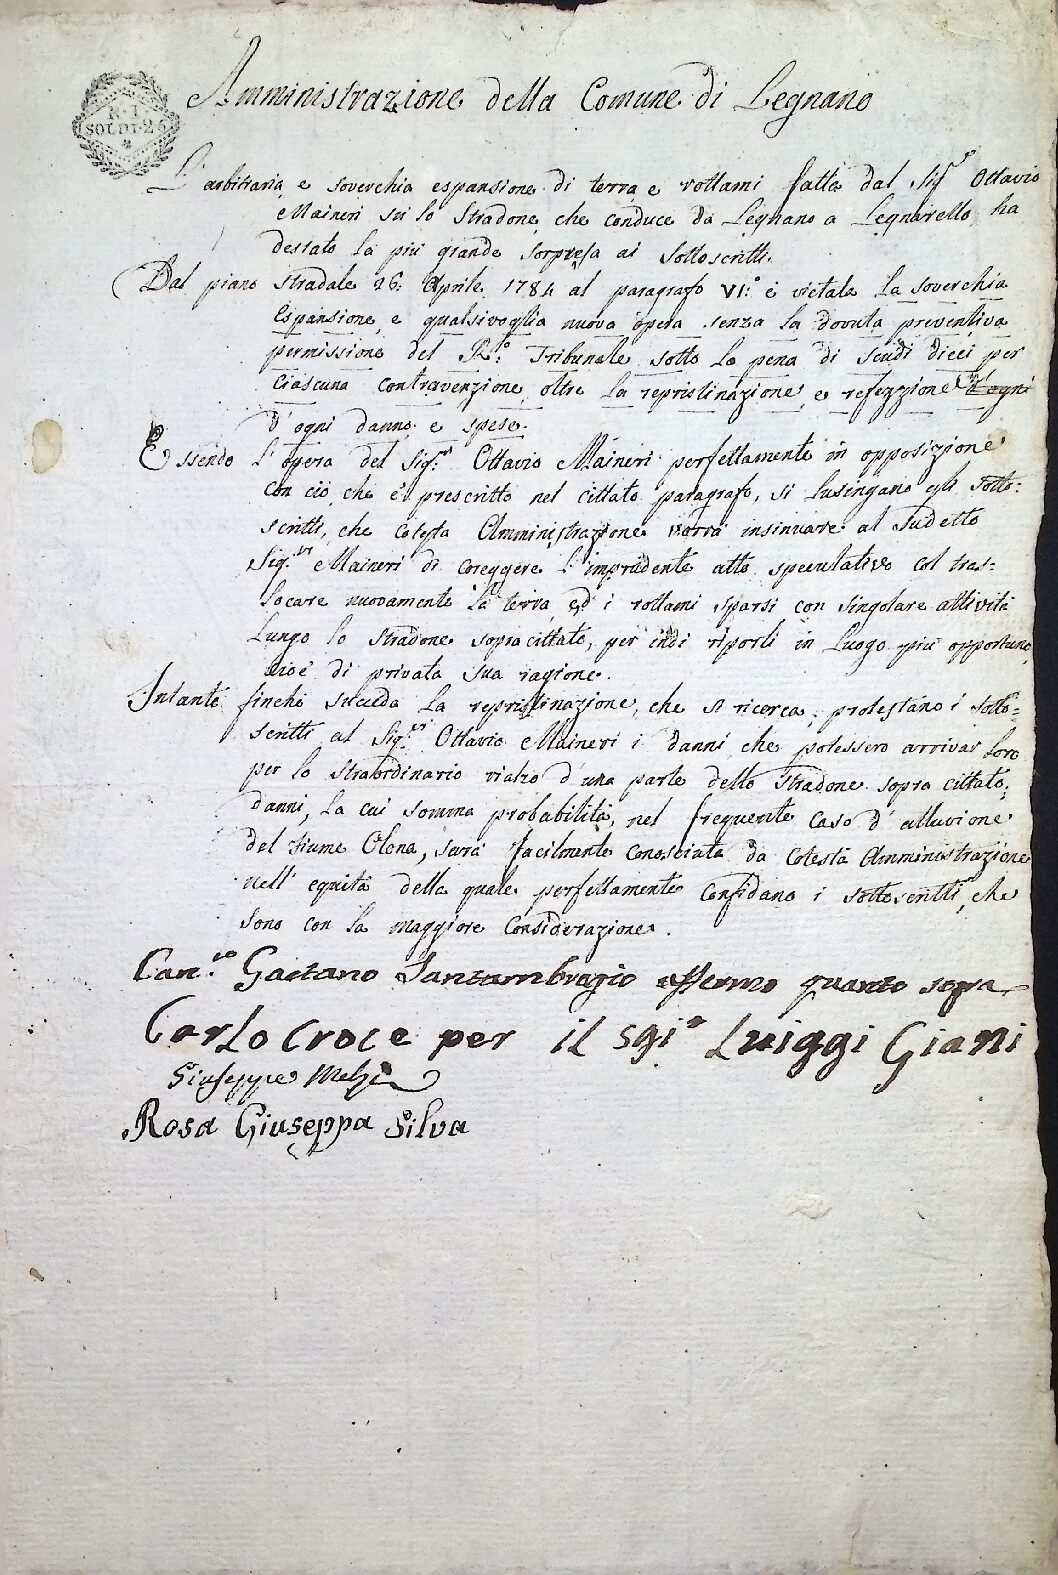 R. I.
SOLDI. 26
Amministrazione della Comune di Legnano
L'arbitraria e soverchia espansione di terra e rottami fatta dal Sigr Ottavio
Maineri su lo Stradone, che conduce da Legnano a Legnarello, ha
destato la più grande sorpresa ai Sottoscritti.
Dal piano stradale 26: Aprile 1784 al paragrafo VI.o è vietata la soverchia
espansione, e qualsivoglia nuova opera senza la dovuta preventiva
permissione del R.o Tribunale sotto la pena di scudi dieci per
ciascuna contravenzione, oltre la repristinazione, e refezzione d'ogni
d'ogni danno e spese.
Essendo l'opera del Sig.r Ottavio Maineri perfettamente in opposizione
con ciò, che è prescritto nel cittato paragrafo, si lusingano gli sotto:
scritti, che cotesta Amministrazione vorrà insinuare al sudetto
Sig.r Maineri di coreggere l'imprudente atto speculativo col tras=
locare nuovamente la terra, ed i rottami sparsi con singolare attività
lungo lo stradone sopracittato, per indi riporli in luogo più opportuno,
cioè di privata sua ragione.
Intanto finchè succeda la repristinazione, che si ricerca, protestano i sotto=
scritti al Sig.r Ottavio Maineri i danni che potessero arrivar loro
per lo straordinario rialzo d'una parte dello Stradone sopra cittato;
danni, la cui somma probabilità, nel frequente caso d'alluvione
del fiume Olona, sarà facilmente conosciuta da cotesta Amministrazione
nell'equità della quale perfettamente confidano i sottoscritti, che
sono con la maggiore considerazione.
Can.co Gaetano Santambrogio affermo quanto sopra
Carlo Croce per il Sgir Luiggi Giani
Giuseppe Melzi
Rosa Giuseppa Silva